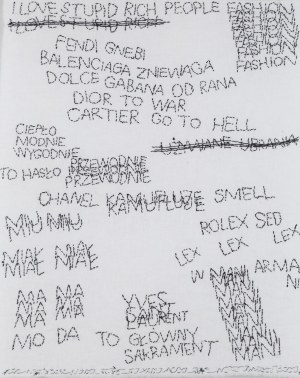 I LOVE STUPID RICH PEOPLE FASHION
I LOVE STUPID RICH FASHION
FASHION
FASHION
FASHION
FASHION
FENDI GNĘBI
BALENCIAGA ZNIEWAGA
DOLCE GABANA OD RANA
DIOR TO WAR
CARTIER GO TO HELL
CIEPŁO
MODNIE
WYGODNIE
UŻYWANE UBRANIA
TO HASŁO PRZEWODNIE
PRZEWODNIE
PRZEWODNIE
CHANEL KAMUFLUZE SMELL
KAMUFLUZE
MIU MIU
ROLEX SED
MIAŁ MIAŁ
MIAŁ MIAŁ
LEX LEX LEX
W MANI ARMA
NI
MANI
MANI
MA MA
MA MA
MA MA
YVES
SAINT
LAURENT
MO DA TO GŁÓWNY
SAKRAMENT
MANI